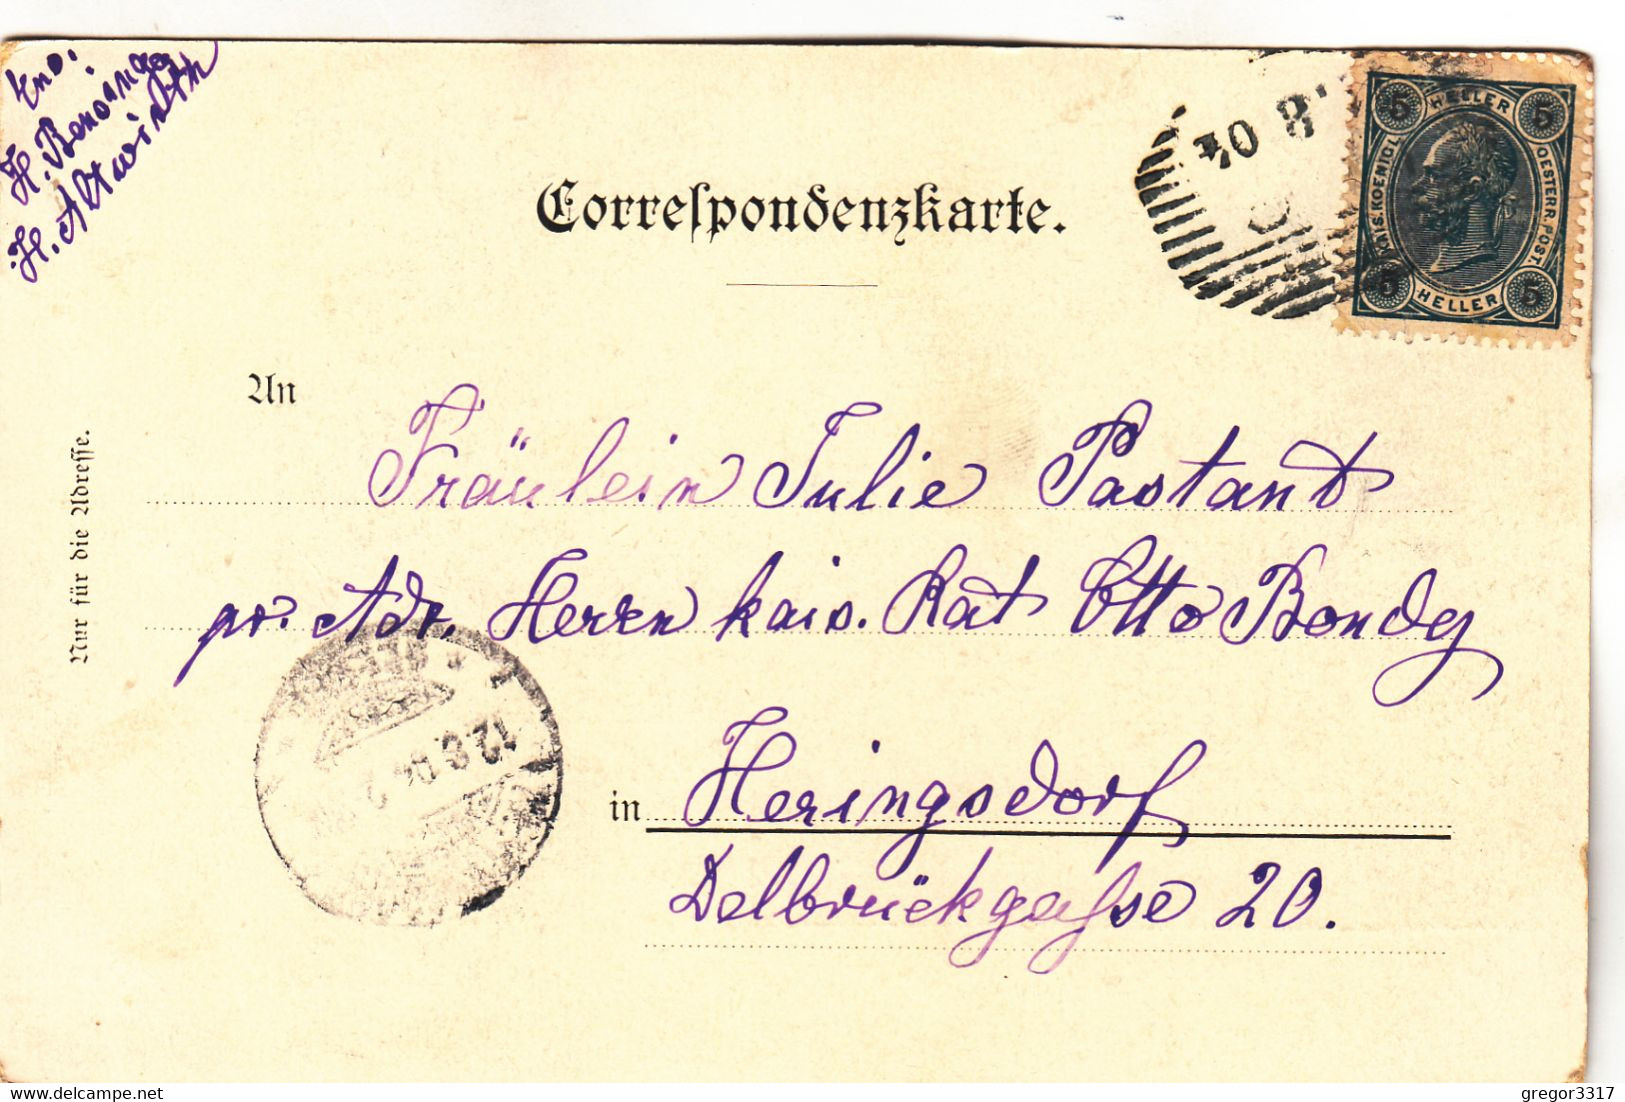 H. Altwirth
Correspondenzkarte.
10 8 04
5 HELLER 5
KAIS. KOENIGL. OESTERR. POST.
5 HELLER 5
An
Fräulein Julie Pastant
pr. Adr. Herrn kais. Rat Otto Bondy
in Heringsdorf
Delbrückgasse 20.
Nur für die Adresse.
12.8.04
gregor3317